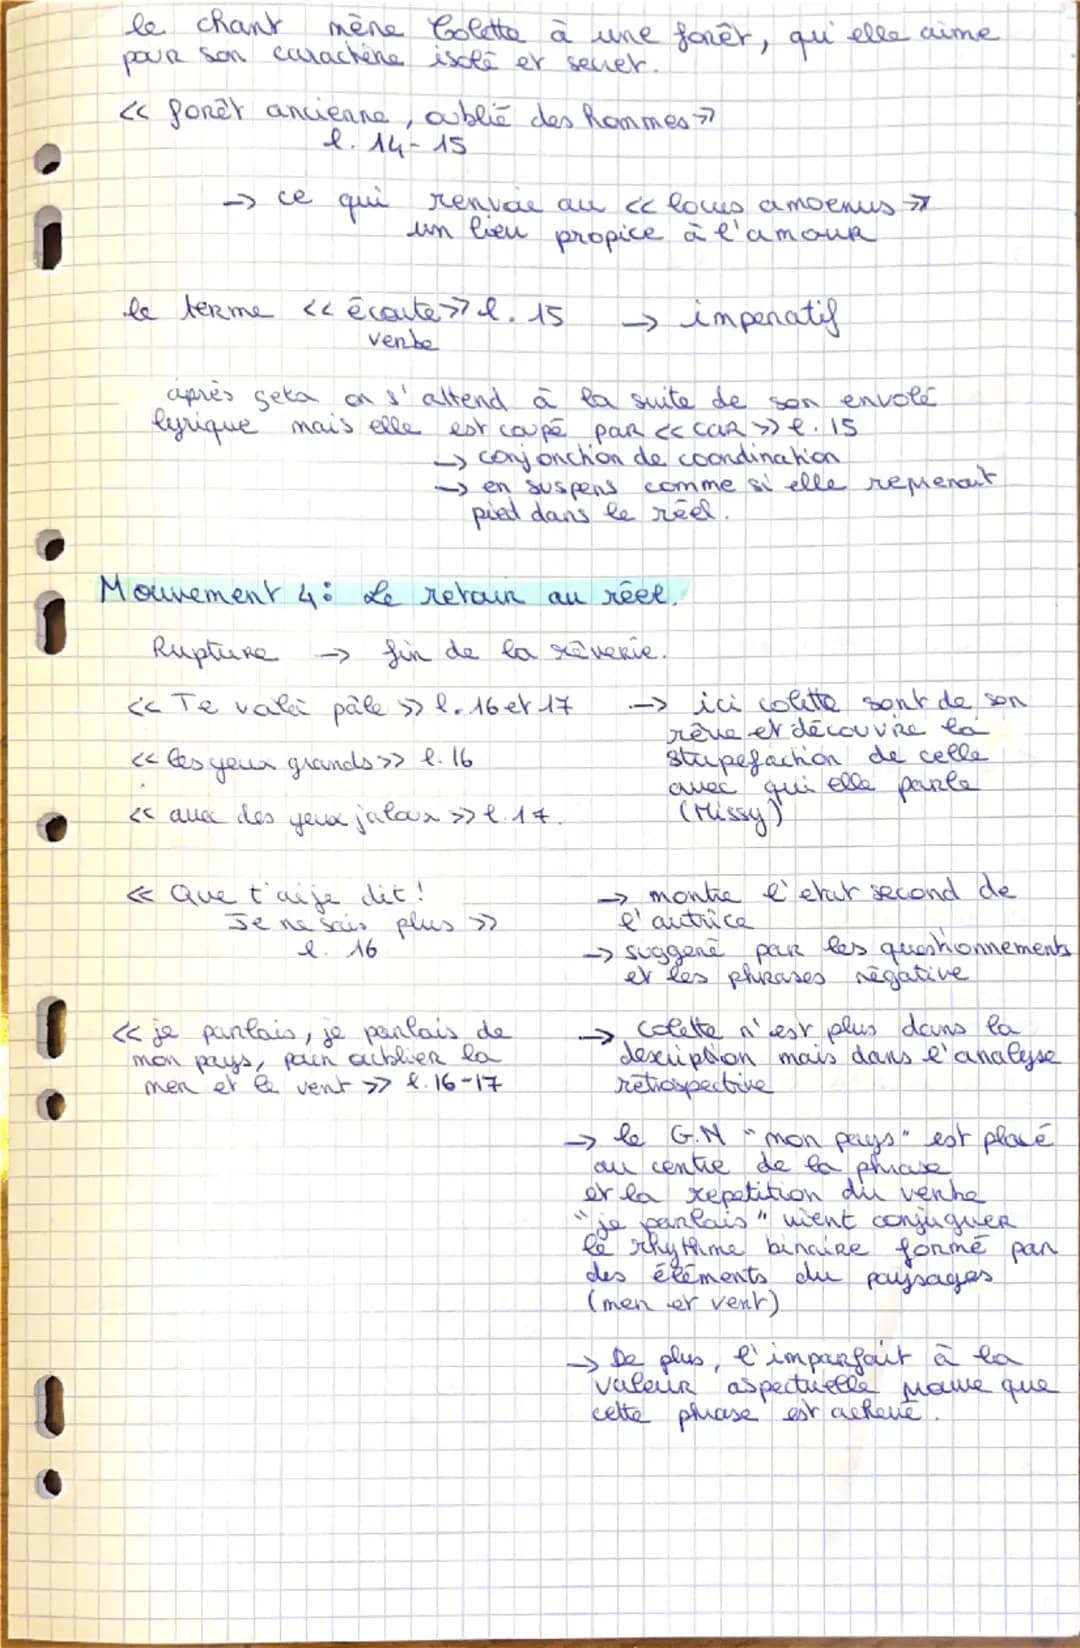 le chant mène Colette à une forêt, qu'elle aime
pour son caractère isolé et secret.
<< forêt ancienne, oublié des hommes >>
l. 14-15
→ ce qui renvoie au << locus amoenus >>
un lieu propice à l'amour
le terme << écoute >> l. 15 → impératif
verbe
après seta on s'attend à la suite de son envolé
lyrique mais elle est coupé par << car >> l. 15
→ conjonction de coordination
→ en suspens comme si elle reprenait
pied dans le réel.
Mouvement 4: Le retour au réel.
Rupture → fin de la rêverie.
<< Te voilà pâle >> l. 16 et 17 → ici colette sort de son
rêve et découvre la
<< les yeux grands >> l. 16 stupefaction de celle
avec qui elle parle
<< avec des yeux jaloux >> l. 17. (Missy)
<< Que t'ai je dit ! → montre l'état second de
Je ne sais plus >> l'autrice
l. 16 → suggéré par les questionnements
et les phrases négative
<< je parlais, je parlais de → Colette n'est plus dans la
mon pays, pour oublier la description mais dans l'analyse
mer et le vent >> l. 16-17 rétrospective
→ le G.N "mon pays" est placé
au centre de la phrase
et la repetition du verbe
"je parlais" vient conjuguer
le rhythme binaire formé par
des éléments du paysages
(mer et vent)
→ De plus, l'imparfait à la
valeur aspectuelle prouve que
cette phrase est achevé.